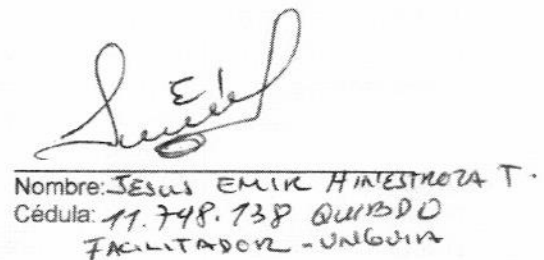 Nombre: JESUS EMIR HINESTROZA T.
Cédula: 11.748.138 QUIBDO
FACILITADOR - UNGUIA